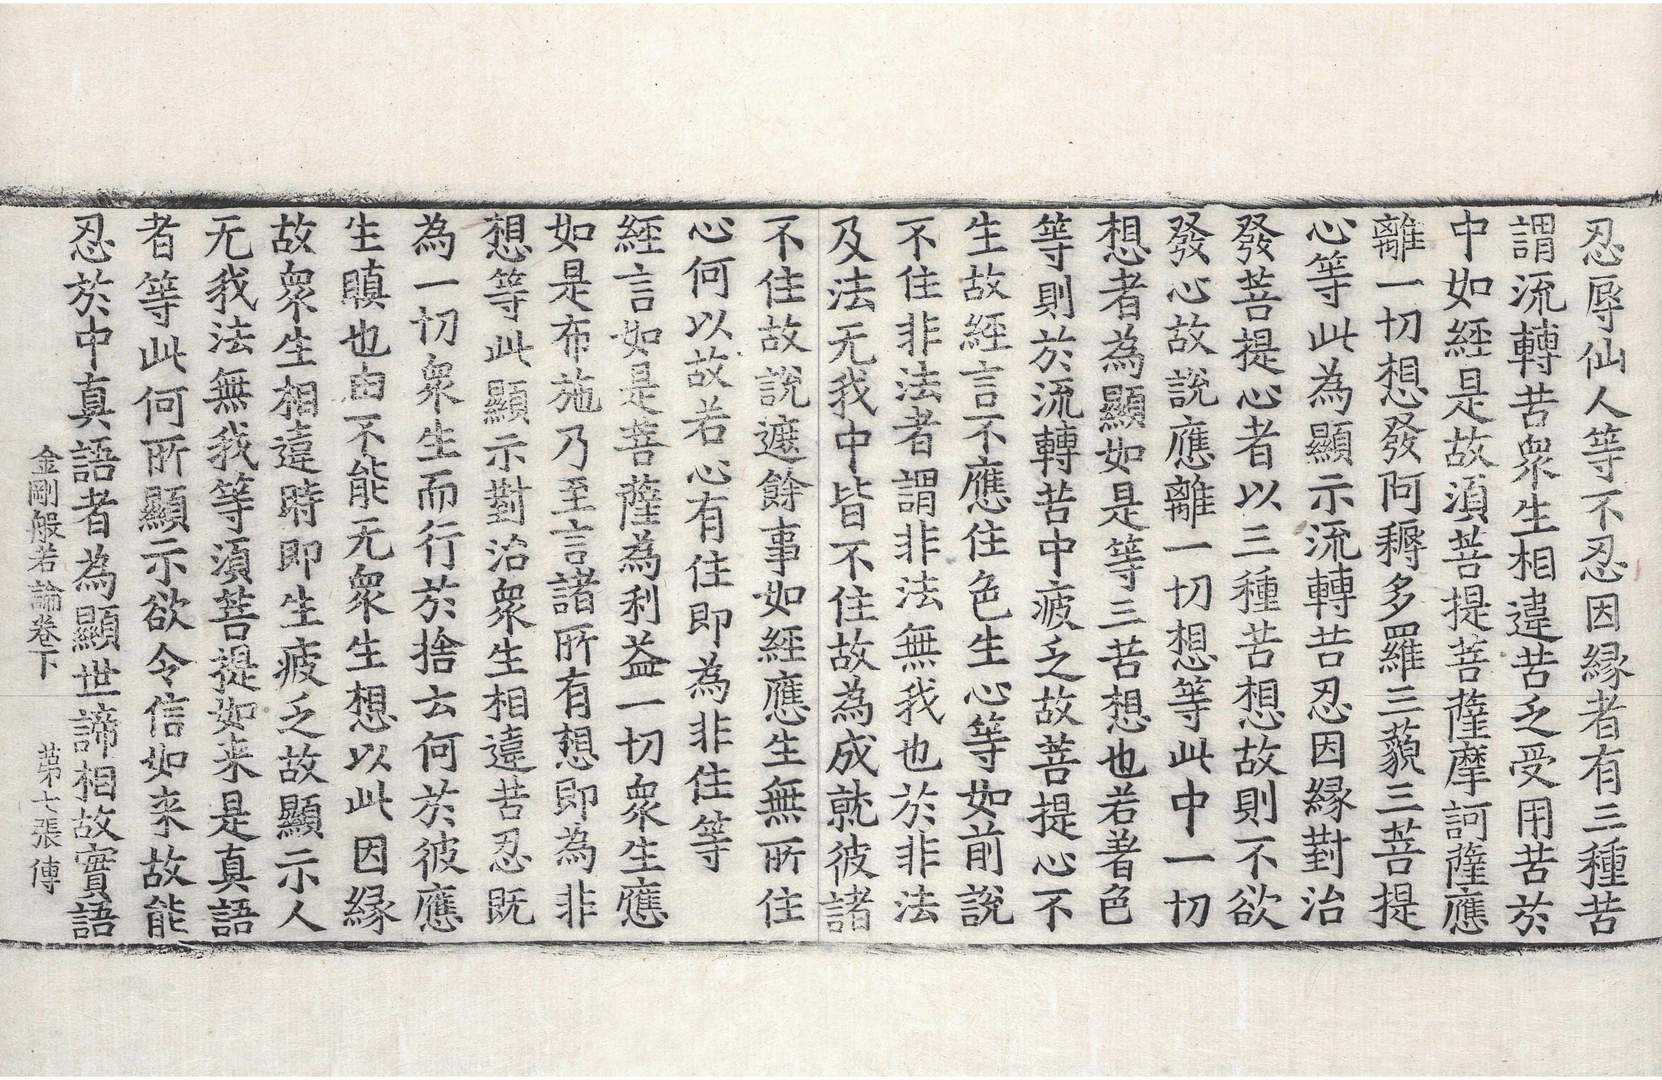 忍辱仙人等不忍因縁者有三種苦
謂流轉苦衆生相違苦乏受用苦於
中如經是故湏菩提菩薩摩訶薩應
離一切想發阿耨多羅三藐三菩提
心等此為顯示流轉苦忍因縁對治
發菩提心者以三種苦想故則不欲
發心故說應離一切想等此中一切
想者為顯如是等三苦想也若著色
等則於流轉苦中疲乏故菩提心不
生故經言不應住色生心等如前說
不住非法者謂非法無我也於非法
及法无我中皆不住故為成就彼諸
不住故說遮餘事如經應生無所住
心何以故若心有住即為非住等
經言如是菩薩為利益一切衆生應
如是布施乃至言諸所有想即為非
想等此顯示對治衆生相違苦忍既
為一切衆生而行於捨云何於彼應
生瞋也由不能无衆生想以此因縁
故衆生相違時即生疲乏故顯示人
无我法無我等湏菩提如来是真語
者等此何所顯示欲令信如来故能
忍於中真語者為顯世諦相故實語
金剛般若論卷下 苐七張 傅